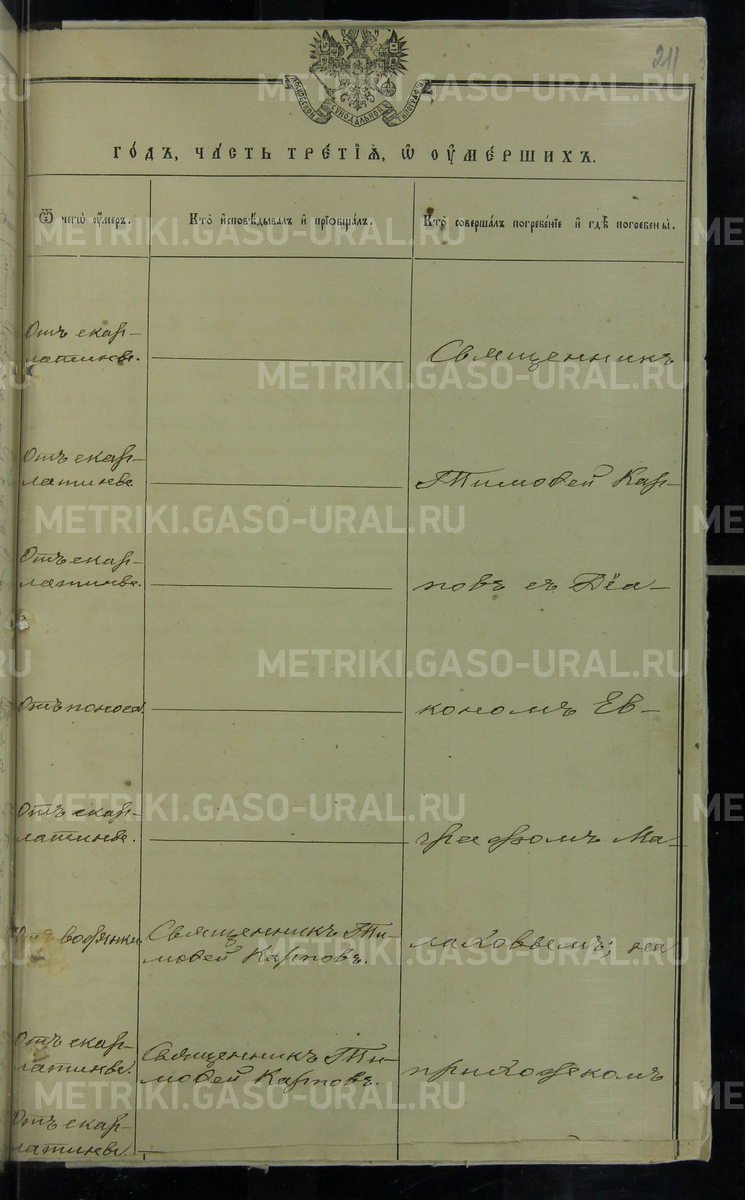 211
МОСКОВСКОЙ СѴНОДАЛЬНОЙ
го́дъ, ча́сть тре́тїѧ, ѡ҆ ᲂу҆ме́ршихъ.
Ѿ чегѡ̀ ᲂу҆́меръ.
Кто̀ и҆сповѣ́дывалъ и҆ прїѻбща́лъ.
Кто̀ соверша́лъ погребе́нїе и҆ гдѣ̀ погребены̀.
Отъ скар-
латины.
Священникъ
Отъ скар-
латины
Тимофей Кар-
Отъ скар-
латины.
повъ съ Діа-
Отъ поноса
кономъ Ев-
Отъ скар-
латины.
графомъ Ма-
Отъ водянки
Священникъ Ти-
мофей Карповъ.
лаховымъ; на
Отъ скар-
латины.
Священникъ Ти-
мофей Карповъ.
приходскомъ
Отъ скар-
латины.
METRIKI.GASO-URAL.RU